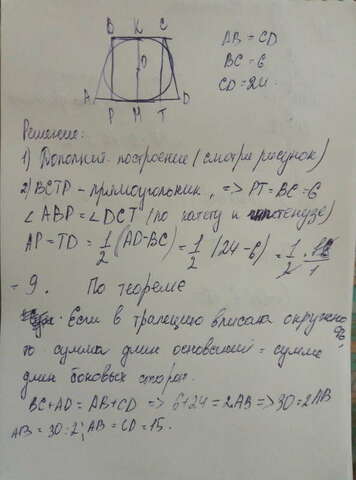 B K C
AB = CD
BC = 6
CD = 24
O
A D
P M T
Решение:
1) Дополнит. построение (смотри рисунок)
2) BCTP - прямоугольник, => PT = BC = 6
∠ABP = ∠DCT (по катету и гипотенузе)
AP = TD = 1/2 (AD - BC) = 1/2 (24 - 6) = 1/2 · 18/1
= 9. По теореме
Если в трапецию вписана окружно
то сумма длин оснований = сумме
длин боковых сторон.
BC + AD = AB + CD => 6 + 24 = 2AB => 30 = 2AB
AB = 30 : 2; AB = CD = 15.